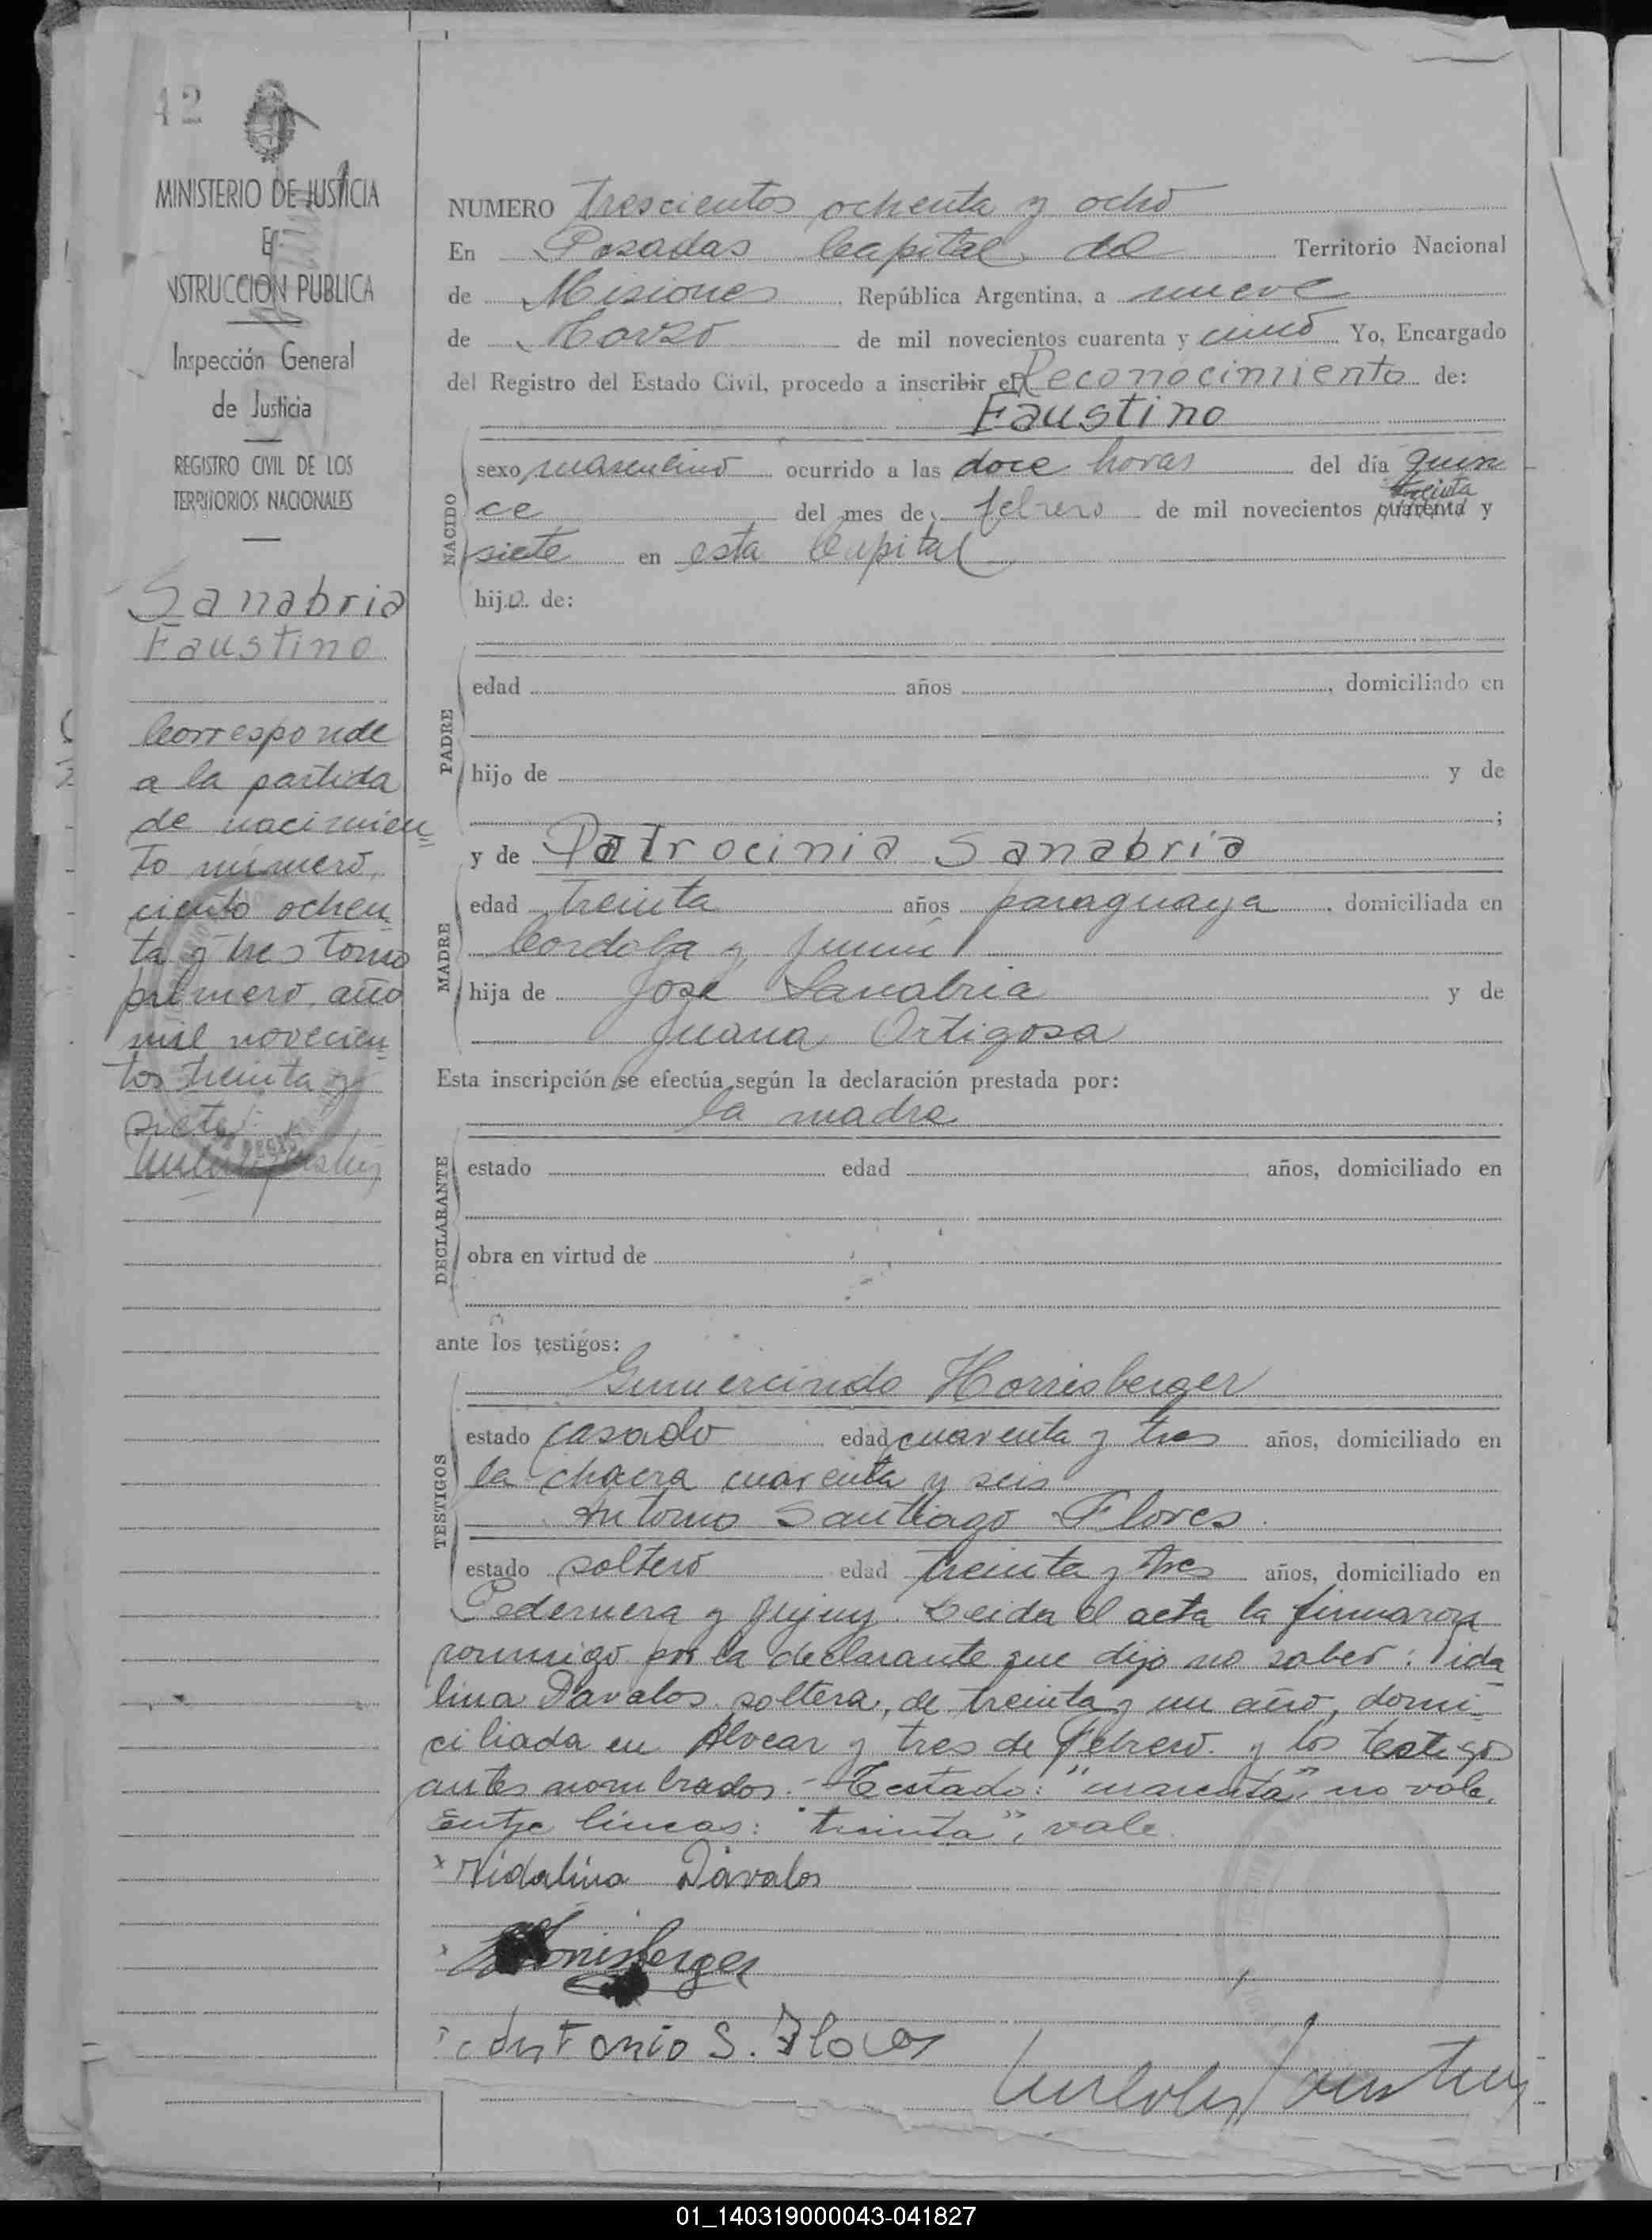 42
MINISTERIO DE JUSTICIA
E
INSTRUCCION PUBLICA
Inspección General
de Justicia
REGISTRO CIVIL DE LOS
TERRITORIOS NACIONALES
Sanabria
Faustino
Corresponde
a la partida
de nacimien
to número,
ciento ochen
ta y tres tomo
primero, año
mil novecien
tos treinta y
siete.
NUMERO Trescientos ochenta y ocho
En Posadas Capital del Territorio Nacional
de Misiones, República Argentina, a nueve
de Marzo de mil novecientos cuarenta y cinco Yo, Encargado
del Registro del Estado Civil, procedo a inscribir el Reconocimiento de:
Faustino
NACIDO
sexo masculino ocurrido a las doce horas del día quin
ce del mes de febrero de mil novecientos cuarenta treinta y
siete en esta Capital
hijo de:
PADRE
edad años , domiciliado en
hijo de y de
;
y de Patrocinia Sanabria
MADRE
edad treinta años paraguaya, domiciliada en
Cordoba y Junin
hija de José Sanabria y de
Juana Ortigosa
Esta inscripción se efectúa según la declaración prestada por:
la madre
DECLARANTE
estado edad años, domiciliado en
obra en virtud de
ante los testigos:
TESTIGOS
Gumercindo Horrisberger
estado casado edad cuarenta y tres años, domiciliado en
la chacra cuarenta y seis
Antonio Santiago Flores
estado soltero edad treinta y tres años, domiciliado en
Pedernera y Jujuy. Leida el acta la firmaron
conmigo por la declarante que dijo no saber: Vida
lina Davalos soltera, de treinta y un año, domi-
ciliada en Alvear y tres de febrero y los testigos
antes nombrados.- Testado: "cuarenta", no vale.
Entre líneas: "treinta", vale.
x Vidalina Dávalos
x Horrisberger
x Antonio S. Flores
01_140319000043-041827